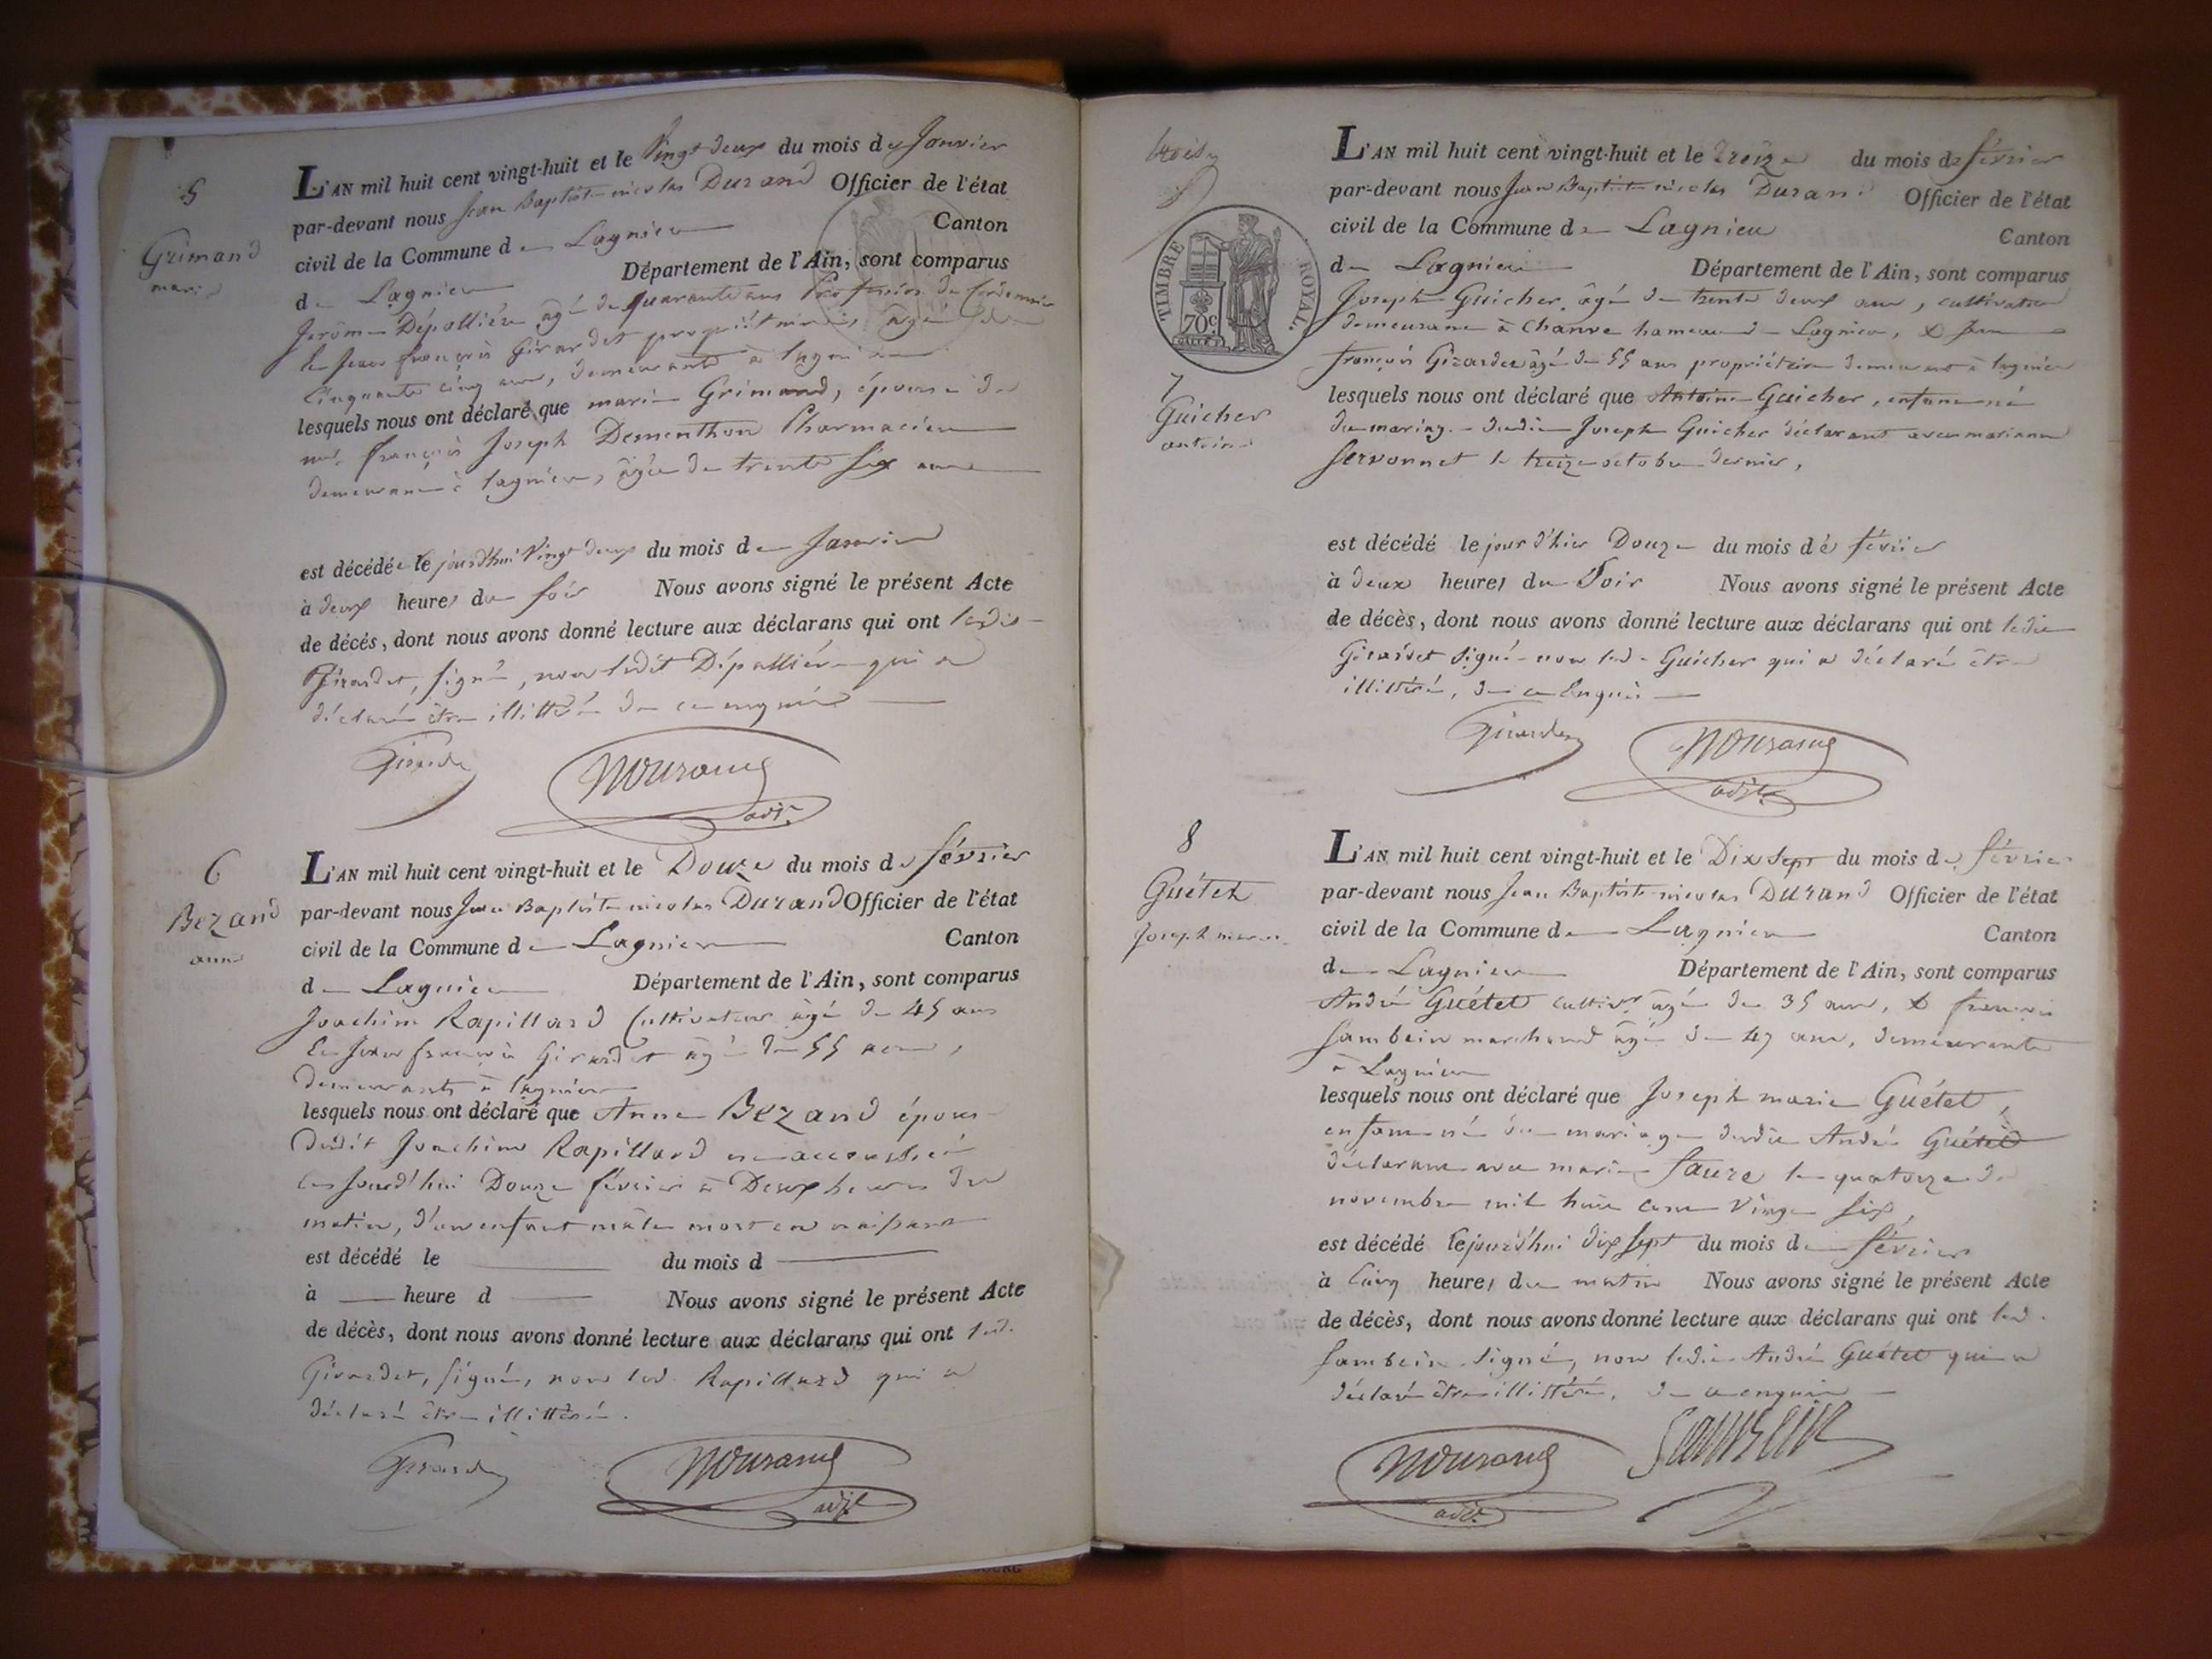 5
Grimand
marie
L'AN mil huit cent vingt-huit et le Vingt deux du mois de Janvier
par-devant nous Jean Baptiste nicolas Durand Officier de l'état
civil de la Commune de Lagnieu Canton
de Lagnieu Département de l'Ain, sont comparus
Jerôme Dépollière âgé de quarante ans Profession de Cordonnier
Jean françois Girardet propriétaire âgé de
Cinquante cinq ans, demeurants à lagnieu
lesquels nous ont déclaré que marie Grimand, épouse de
françois Joseph Dementhon Pharmacien
demeurant à lagnieu, âgée de trente six ans
est décédée le jourd'hui Vingt deux du mois de Janvier
à deux heures du soir Nous avons signé le présent Acte
de décés, dont nous avons donné lecture aux déclarans qui ont ledit
Girardet, signé, non ledit Dépollière qui a
déclaré être illittéré de ce enquis
Girardet
adjt.
6
Bezand
anne
L'AN mil huit cent vingt-huit et le Douze du mois de février
par-devant nous Jean Baptiste nicolas Durand Officier de l'état
civil de la Commune de Lagnieu Canton
de Lagnieu Département de l'Ain, sont comparus
Joachim Rapillard Cultivateur âgé de 45 ans
Jean françois Girardet âgé de 55 ans,
demeurants à lagnieu
lesquels nous ont déclaré que Anne Bezand épouse
dudit Joachim Rapillard accouchée
jourd'hui Douze février à Deux heures du
matin, d'un enfant mâle mort en naissant
est décédé le du mois d
à heure d Nous avons signé le présent Acte
de décès, dont nous avons donné lecture aux déclarans qui ont led.
Girardet, signé, non led. Rapillard qui a
déclaré être illittéré.
Girardet
adjt
TIMBRE ROYAL.
70c.
7
Guicher
antoine
L'AN mil huit cent vingt-huit et le treize du mois de février
par-devant nous Jean Baptiste nicolas Durand Officier de l'état
civil de la Commune de Lagnieu Canton
de Lagnieu Département de l'Ain, sont comparus
Joseph Guicher, âgé de trente deux ans, cultivateur
demeurant à Chanve hameau de Lagnieu, & Jean
françois Girardet âgé de 55 ans propriétaire demeurant à lagnieu
lesquels nous ont déclaré que Antoine Guicher, enfant né
du mariage dudit Joseph Guicher déclarant avec marianne
Servonnet le treize octobre dernier,
est décédé le jour d'hier Douze du mois de février
à deux heures du Soir Nous avons signé le présent Acte
de décès, dont nous avons donné lecture aux déclarans qui ont ledit
Girardet signé non led. Guicher qui a déclaré être
illittéré, de ce Enquis
Girardet
adjt.
8
Guétet
Joseph marie
L'AN mil huit cent vingt-huit et le Dix Sept du mois de février
par-devant nous Jean Baptiste nicolas Durand Officier de l'état
civil de la Commune de Lagnieu Canton
de Lagnieu Département de l'Ain, sont comparus
André Guétet cultivr âgé de 35 ans, & françois
Sambein marchand âgé de 47 ans, demeurants
à Lagnieu
lesquels nous ont déclaré que Joseph marie Guétet,
enfant né du mariage dudit André Guétet
déclarant avec marie faure le quatorze de
novembre mil huit cent Vingt Six,
est décédé lejourd'hui dix sept du mois de février
à Cinq heures du matin Nous avons signé le présent Acte
de décès, dont nous avons donné lecture aux déclarans qui ont led.
Sambein signé, non ledit André Guétet qui a
déclaré être illittéré, de ce enquis
adjt.
Sambein